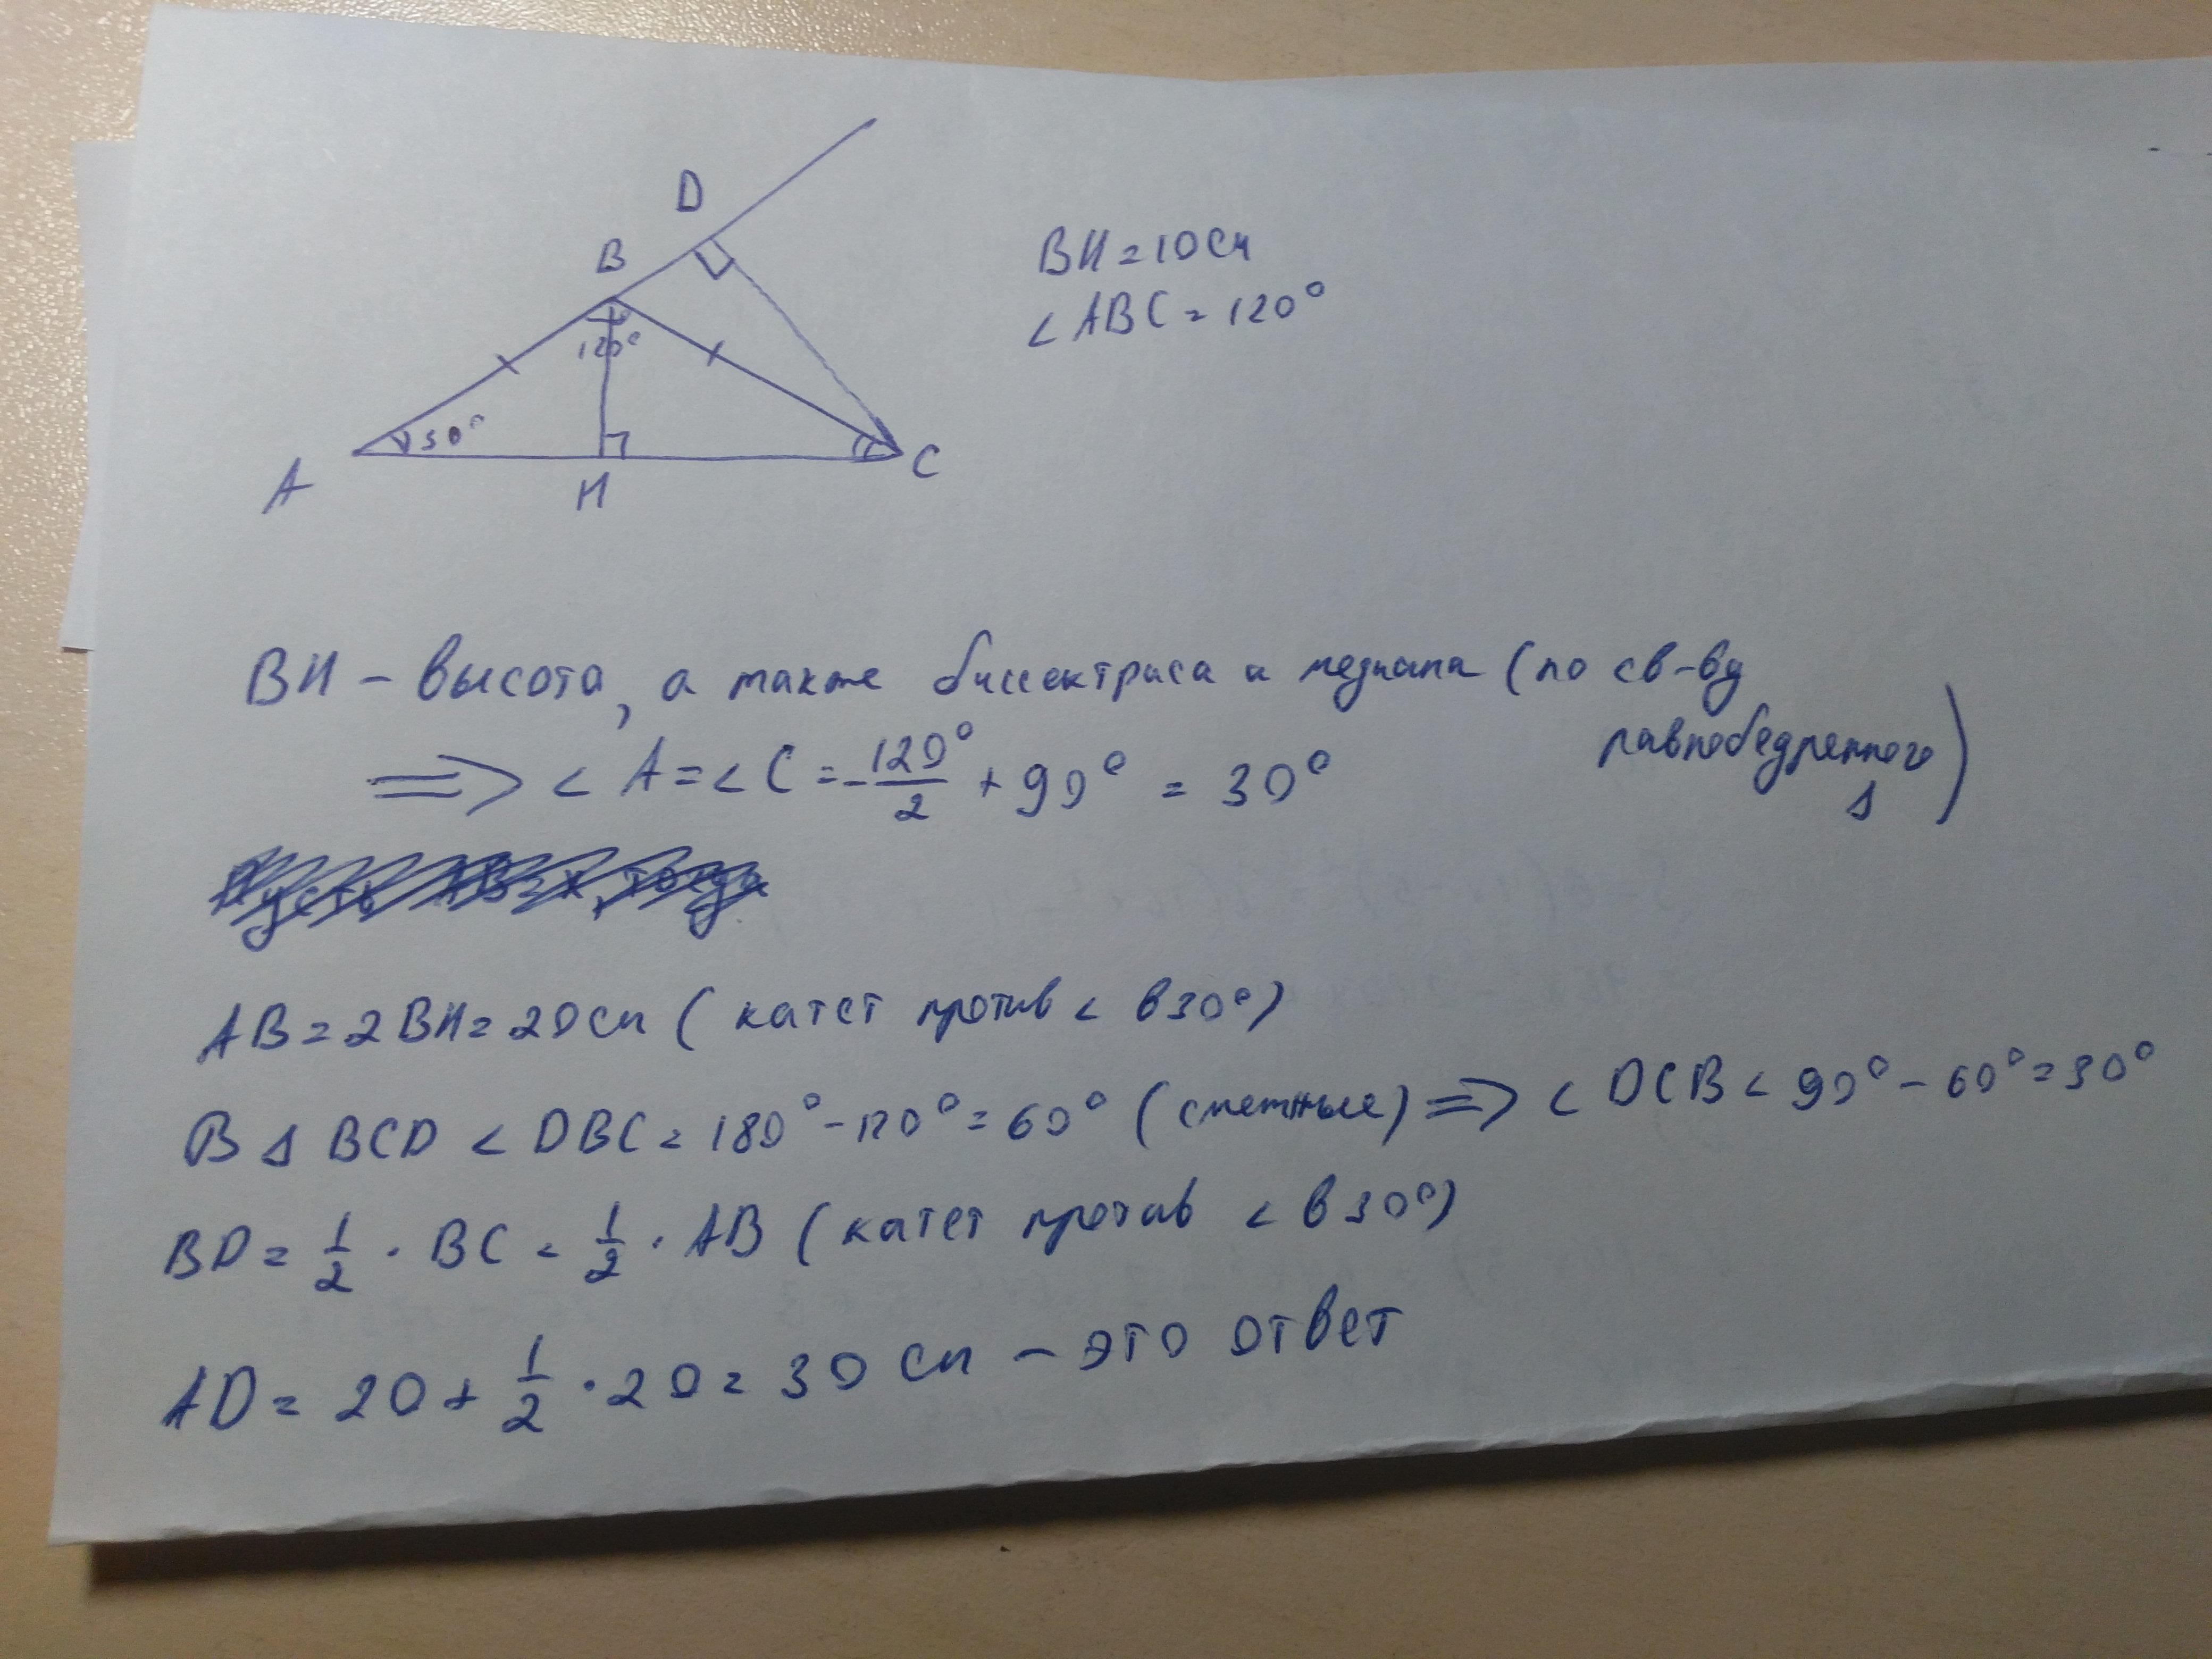 D
B
BH = 10 см
∠ABC = 120°
120°
30°
A
H
C
BH – высота, а также биссектриса и медиана (по св-ву
равнобедренного
Δ)
⟹ ∠A = ∠C = -120°/2 + 90° = 30°
AB = 2BH = 20 см (катет против ∠ в 30°)
В Δ BCD ∠DBC = 180° - 120° = 60° (смежные) ⟹ ∠DCB = 90° - 60° = 30°
BD = 1/2 · BC = 1/2 · AB (катет против ∠ в 30°)
AD = 20 + 1/2 · 20 = 30 см – это ответ